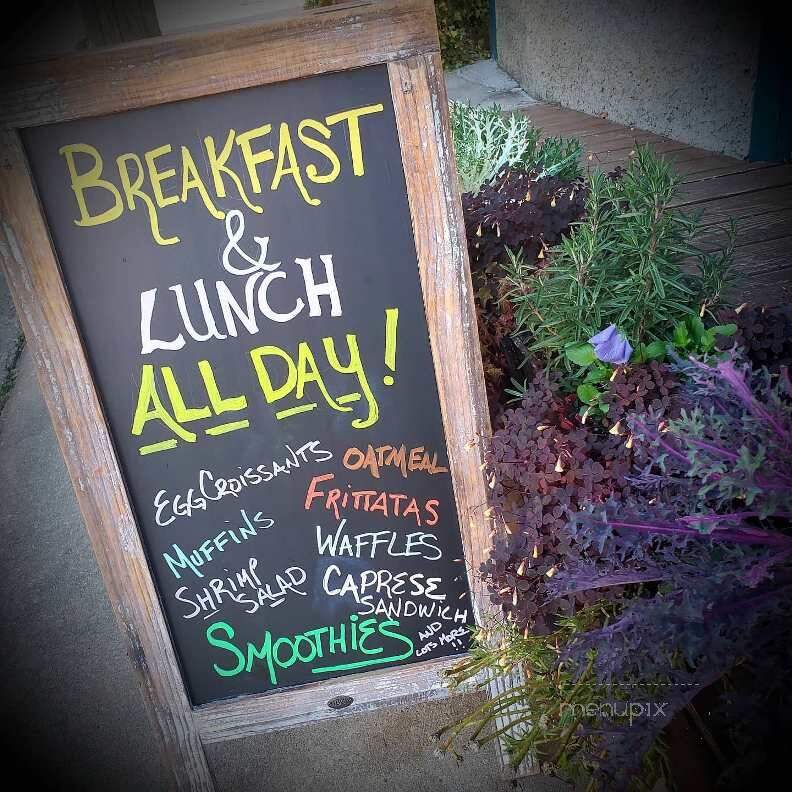 BREAKFAST
&
LUNCH
ALL DAY!
EGG CROISSANTS
OATMEAL
FRITTATAS
MUFFINS
WAFFLES
SHRIMP
SALAD
CAPRESE
SANDWICH
SMOOTHIES
AND
LOTS MORE
!!
menupix